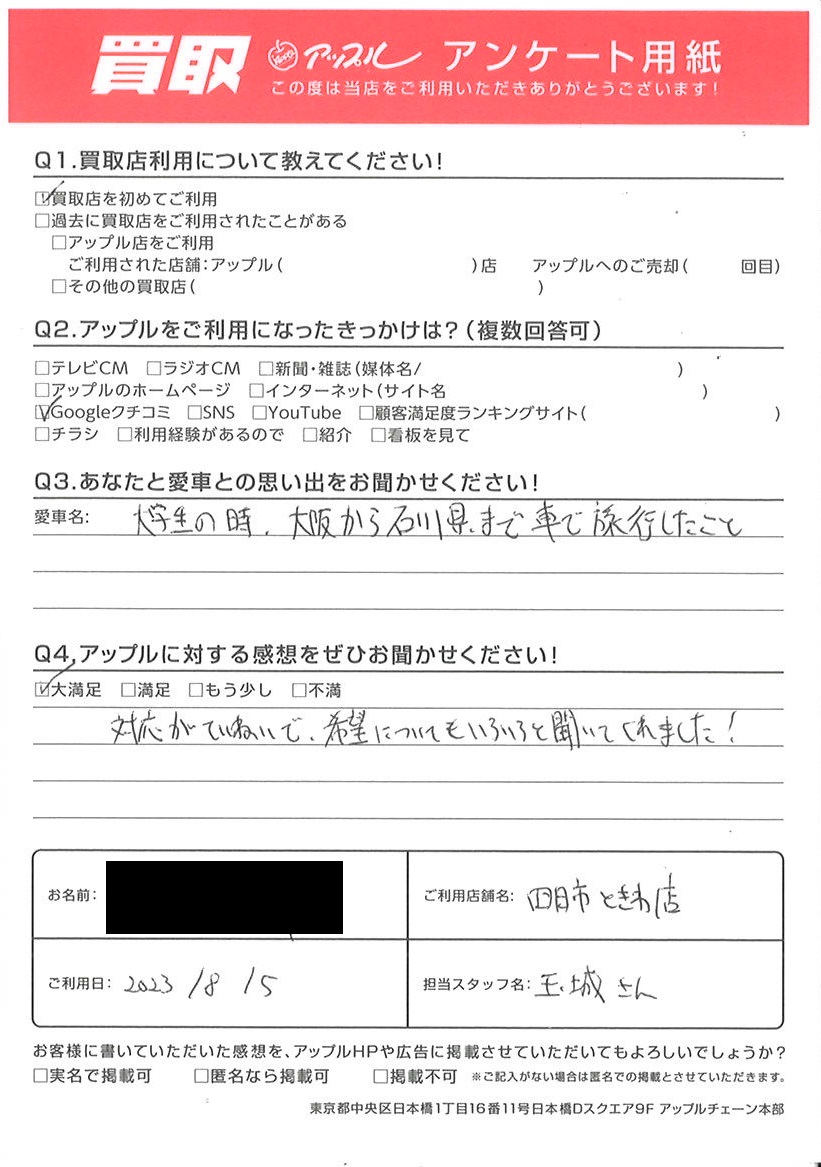 買取 アップル アンケート用紙
この度は当店をご利用いただきありがとうございます!
Q1.買取店利用について教えてください!
☑買取店を初めてご利用
□過去に買取店をご利用されたことがある
□アップル店をご利用
ご利用された店舗:アップル( )店 アップルへのご売却( 回目)
□その他の買取店( )
Q2.アップルをご利用になったきっかけは?(複数回答可)
□テレビCM □ラジオCM □新聞・雑誌(媒体名/ )
□アップルのホームページ □インターネット(サイト名 )
☑Googleクチコミ □SNS □YouTube □顧客満足度ランキングサイト( )
□チラシ □利用経験があるので □紹介 □看板を見て
Q3.あなたと愛車との思い出をお聞かせください!
愛車名: 大学生の時、大阪から石川県まで車で旅行したこと
Q4.アップルに対する感想をぜひお聞かせください!
☑大満足 □満足 □もう少し □不満
対応がていねいで、希望についてもいろいろと聞いてくれました!
お名前:
ご利用店舗名: 四日市ときわ店
ご利用日: 2023/8/5
担当スタッフ名: 玉城さん
お客様に書いていただいた感想を、アップルHPや広告に掲載させていただいてもよろしいでしょうか?
□実名で掲載可 □匿名なら掲載可 □掲載不可 ※ご記入がない場合は匿名での掲載とさせていただきます。
東京都中央区日本橋1丁目16番11号日本橋Dスクエア9F アップルチェーン本部